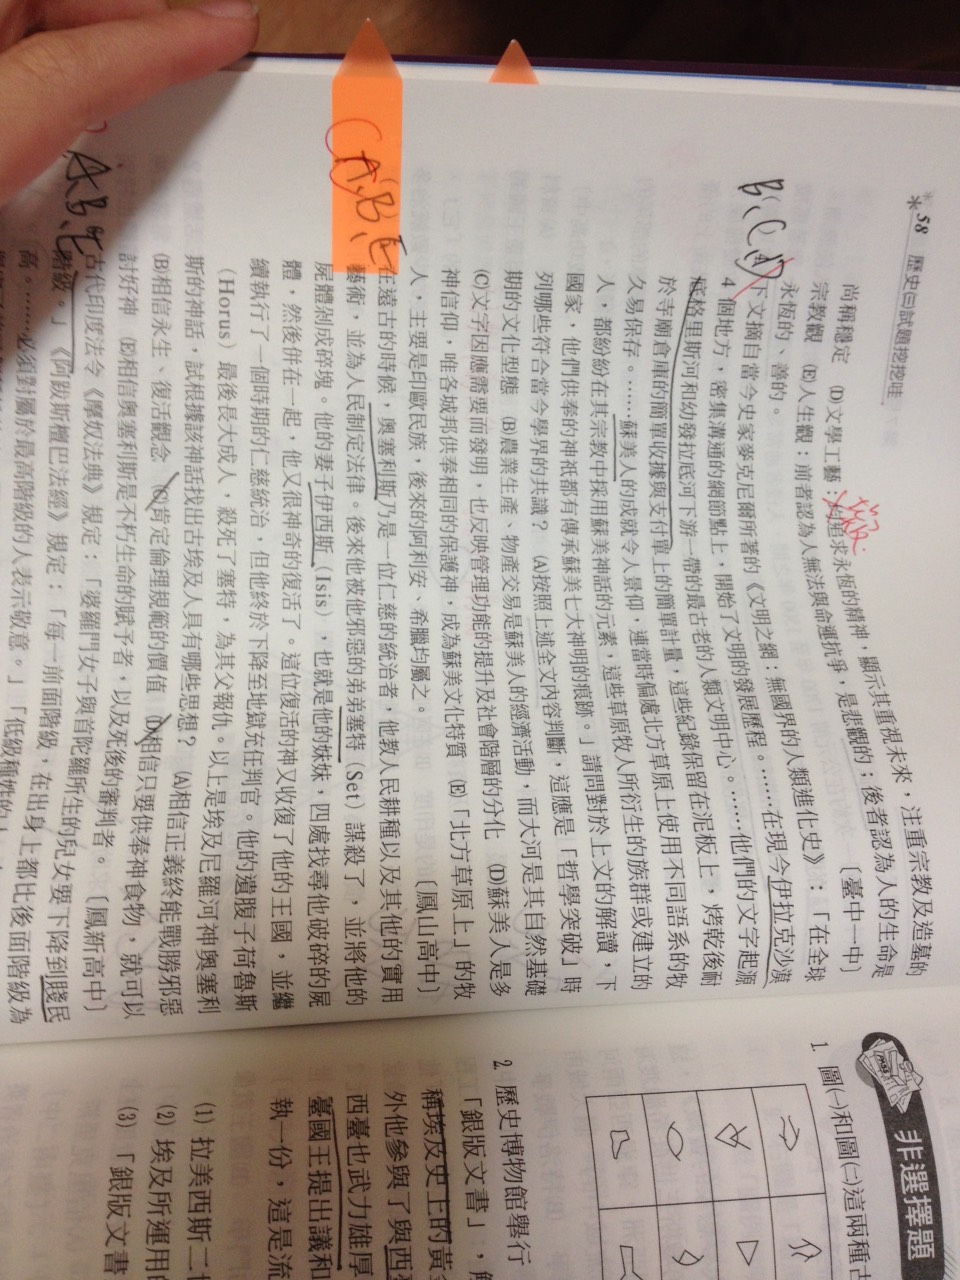 58 歷史曰試題挖挖哇
尚稱穩定 (D)文學工藝：均追求永恆的精神，顯示其重視未來，注重宗教及造墓的
宗教觀 (E)人生觀：前者認為人無法與命運抗爭，是悲觀的；後者認為人的生命是
永恆的、善的。 〔臺中一中〕
B、C
4. 下文摘自當今史家麥克尼爾所著的《文明之網：無國界的人類進化史》：「在全球
4 個地方，密集溝通的網節點上，開始了文明的發展歷程。……在現今伊拉克沙漠
底格里斯河和幼發拉底河下游一帶的最古老的人類文明中心。……他們的文字起源
於寺廟倉庫的簡單收據與支付單上的簡單計量，這些紀錄保留在泥板上，烤乾後耐
久易保存。……蘇美人的成就令人景仰，連當時偏處北方草原上使用不同語系的牧
人，都紛紛在其宗教中採用蘇美神話的元素，這些草原牧人所衍生的族群或建立的
國家，他們供奉的神祇都有傳承蘇美七大神明的痕跡。」請問對於上文的解讀，下
列哪些符合當今學界的共識？ (A)按照上述全文內容判斷，這應是「哲學突破」時
期的文化型態 (B)農業生產、物產交易是蘇美人的經濟活動，而大河是其自然基礎
(C)文字因應需要而發明，也反映管理功能的提升及社會階層的分化 (D)蘇美人是多
神信仰，唯各城邦供奉相同的保護神，成為蘇美文化特質 (E)「北方草原上」的牧
人，主要是印歐民族，後來的阿利安、希臘均屬之。 〔鳳山高中〕
A、B、E
在遠古的時候，奧塞利斯乃是一位仁慈的統治者，他教人民耕種以及其他的實用
藝術，並為人民制定法律。後來他被他邪惡的弟弟塞特（Set）謀殺了，並將他的
屍體剁成碎塊。他的妻子伊西斯（Isis），也就是他的妹妹，四處找尋他破碎的屍
體，然後併在一起，他又很神奇的復活了。這位復活的神又收復了他的王國，並繼
續執行了一個時期的仁慈統治，但他終於下降至地獄充任判官。他的遺腹子荷魯斯
（Horus）最後長大成人，殺死了塞特，為其父報仇。以上是埃及尼羅河神奧塞利
斯的神話，試根據該神話找出古埃及人具有哪些思想？ (A)相信正義終能戰勝邪惡
(B)相信永生、復活觀念 (C)肯定倫理規範的價值 (D)相信只要供奉神食物，就可以
討好神 (E)相信奧塞利斯是不朽生命的賦予者，以及死後的審判者。〔鳳新高中〕
A、B、E
古代印度法令《摩奴法典》規定：「婆羅門女子與首陀羅所生的兒女要下降到賤民
階級。」《阿跋斯檀巴法經》規定：「每一前面階級，在出身上都比後面階級為
高。……必須對屬於最高階級的人表示敬意。」「低級種姓的
非選擇題
1. 圖㈠和圖㈡這兩種古
2. 歷史博物館舉行
「銀版文書」，
稱埃及史上的黃金
外他參與了與西
西臺也武力雄厚
臺國王提出議和
執一份，這是流
(1) 拉美西斯二
(2) 埃及所運用
(3) 「銀版文書